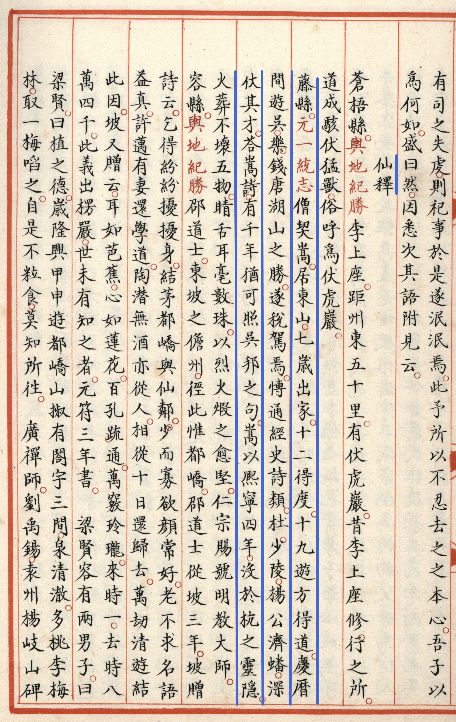 有司之失虔則祀事於是遂泯泯焉此予所以不忍去之之本心吾子以
爲何如咸曰然因悉次其語附見云
仙釋
蒼梧縣輿地紀勝李上座距州東五十里有伏虎巖昔李上座修行之所
道成駭伏猛獸俗呼爲伏虎巖
藤縣元一統志僧契嵩居東山七歲出家十二得度十九遊方得道慶曆
間遊吳樂錢唐湖山之勝遂稅駕焉博通經史詩類杜少陵揚公濟蟠深
伏其才荅嵩詩有千年猶可照吳邦之句嵩以熈寧四年没於杭之靈隱
火葬不壞五物睛舌耳毫數珠以烈火煅之愈堅仁宗賜號明教大師
容縣輿地紀勝邵道士東坡之儋州徑此惟都嶠邵道士從坡三年坡贈
詩云乞得紛紛擾擾身結茅都嶠與仙鄰少而寡欲顏常好老不求名語
益真許邁有妻還學道陶潛無酒亦從人相從十日還歸去萬劫清遊結
此因坡又贈云耳如芭蕉心如蓮花百孔疏通萬竅玲瓏來時一去時八
萬四千此義出楞嚴世未有知之者元符三年書 梁賢容有兩男子曰
梁賢曰植之德歲隆興甲申遊都嶠山椒有閣字三間泉清澈多桃李梅
林取一梅啗之自是不粒食莫知所往 廣禪師劉禹錫袁州揚岐山碑